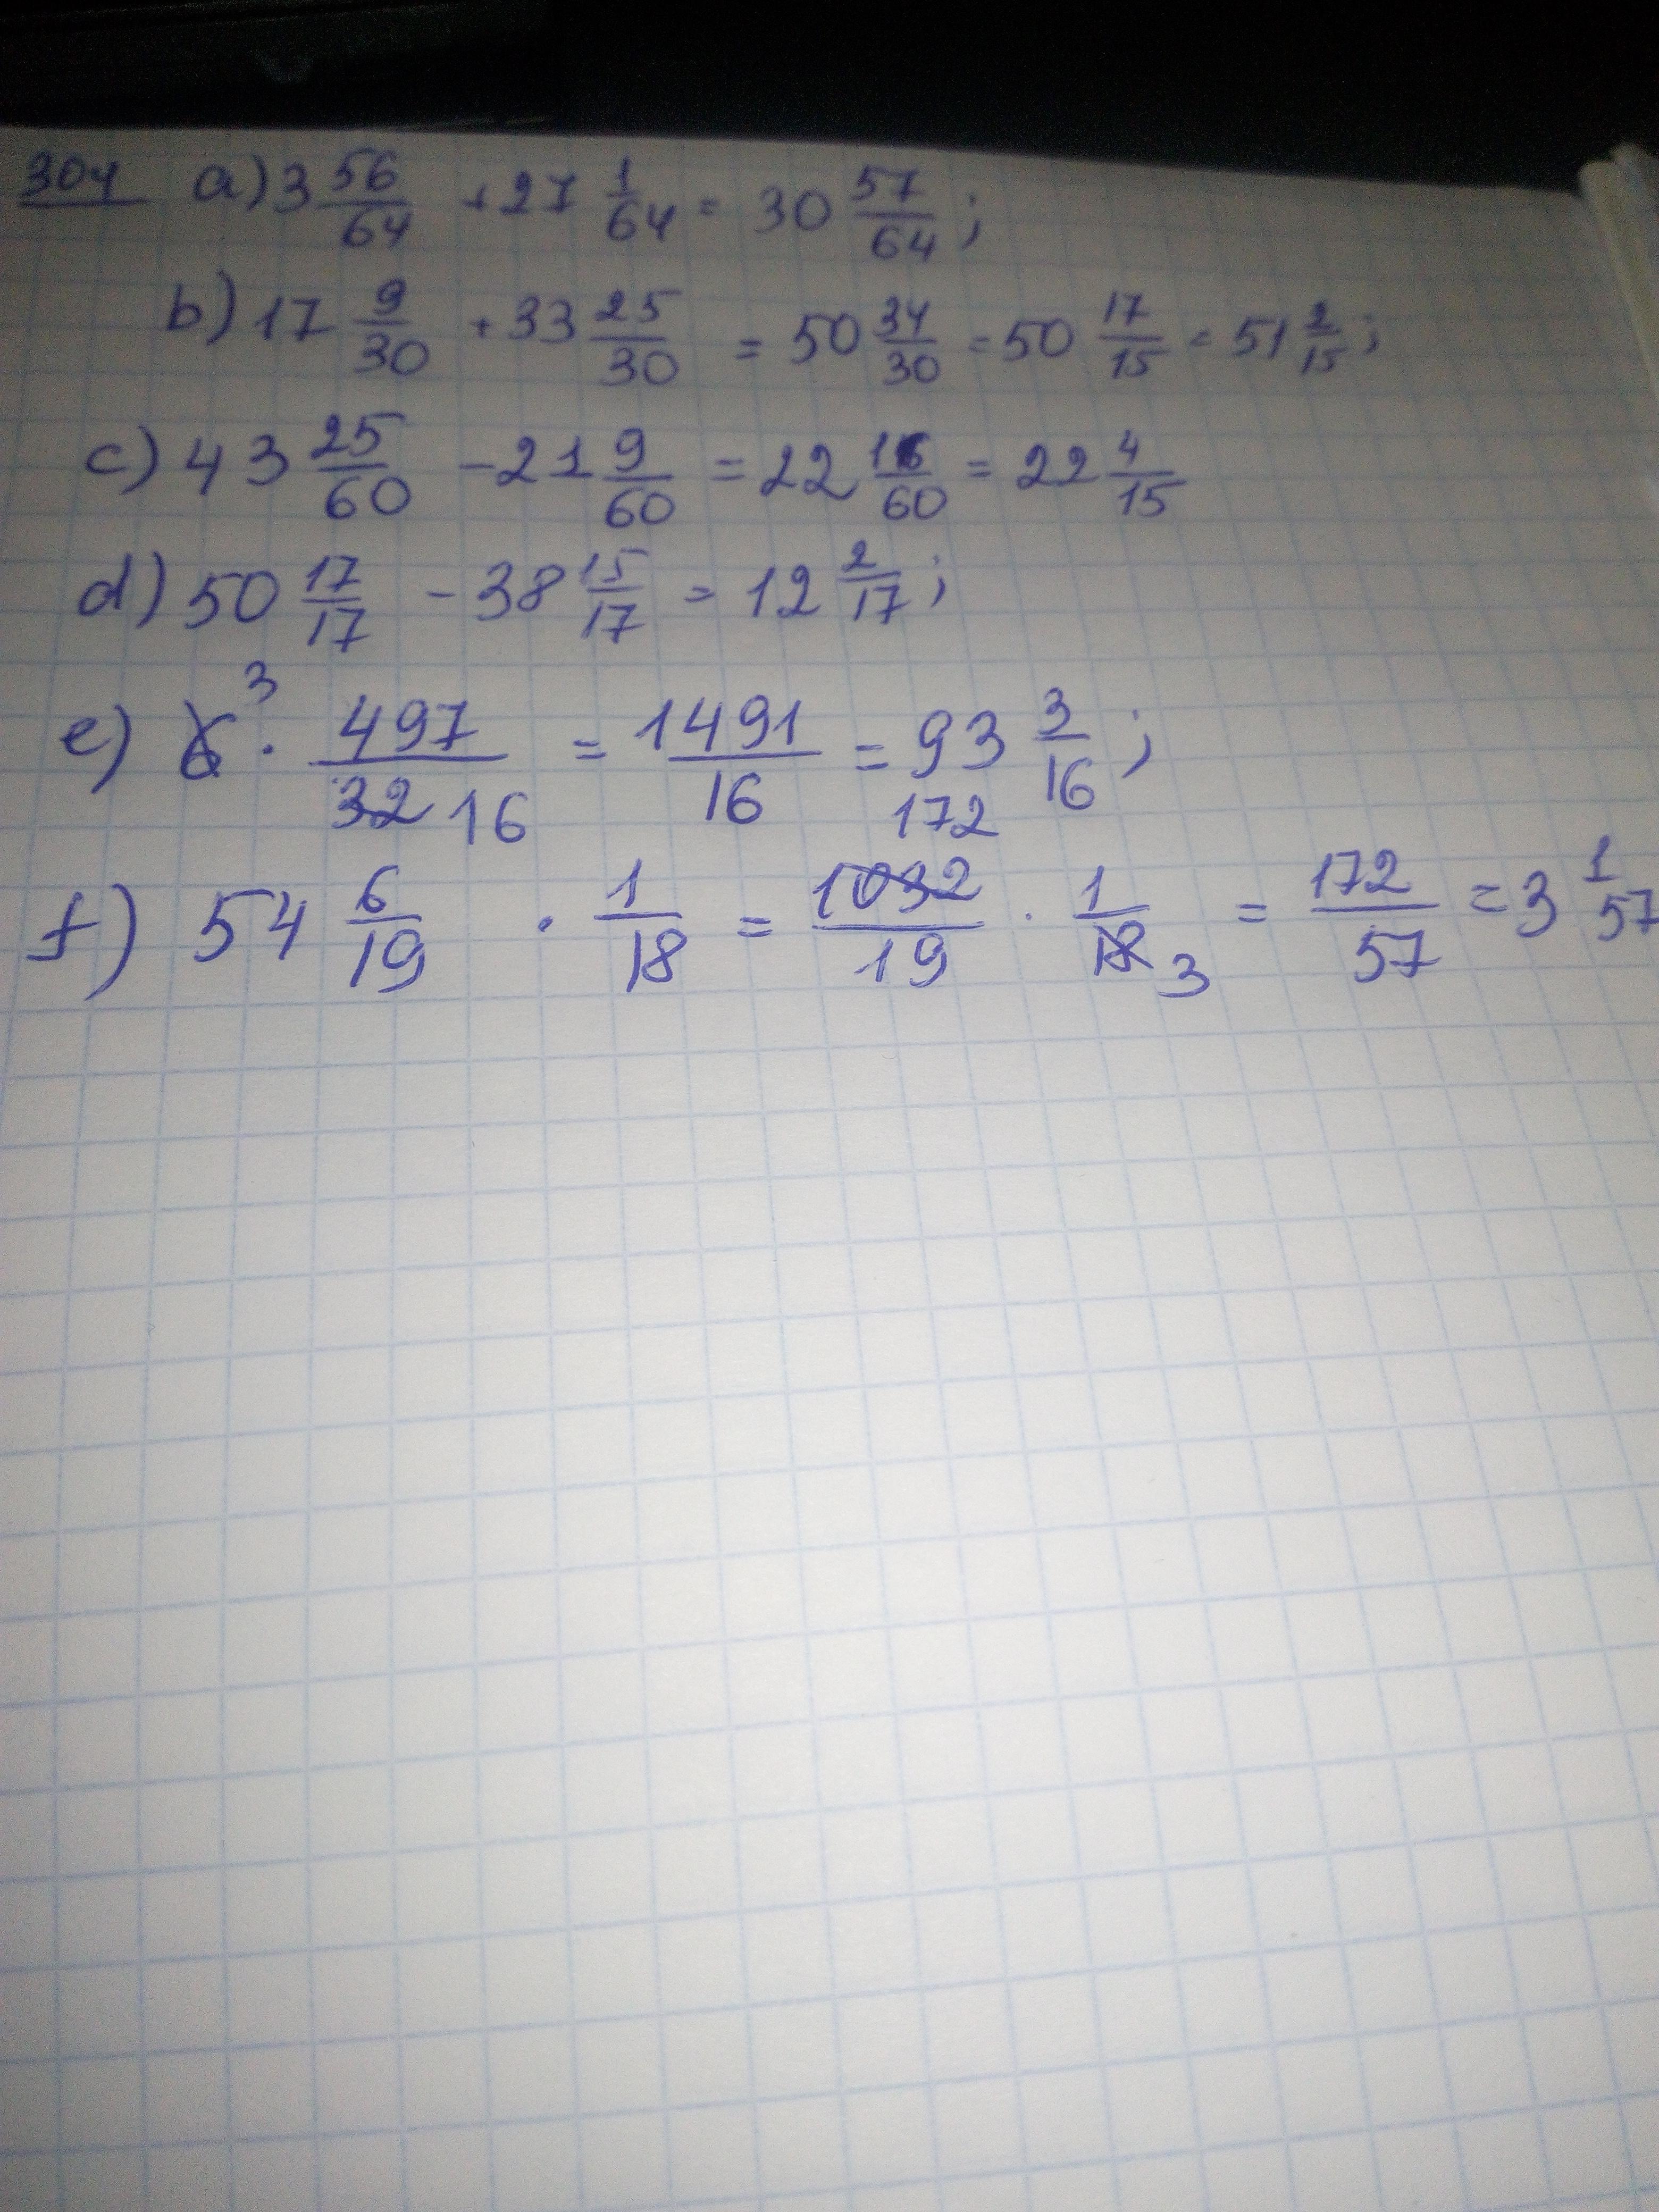 304 a) 3 56/64 + 27 1/64 = 30 57/64 ;
b) 17 9/30 + 33 25/30 = 50 34/30 = 50 17/15 = 51 2/15 ;
c) 43 25/60 - 21 9/60 = 22 16/60 = 22 4/15
d) 50 17/17 - 38 15/17 = 12 2/17 ;
e) 6 3 · 497/32 16 = 1491/16 = 93 3/16 ;
f) 54 6/19 · 1/18 = 172 1032/19 · 1/18 3 = 172/57 = 3 1/57